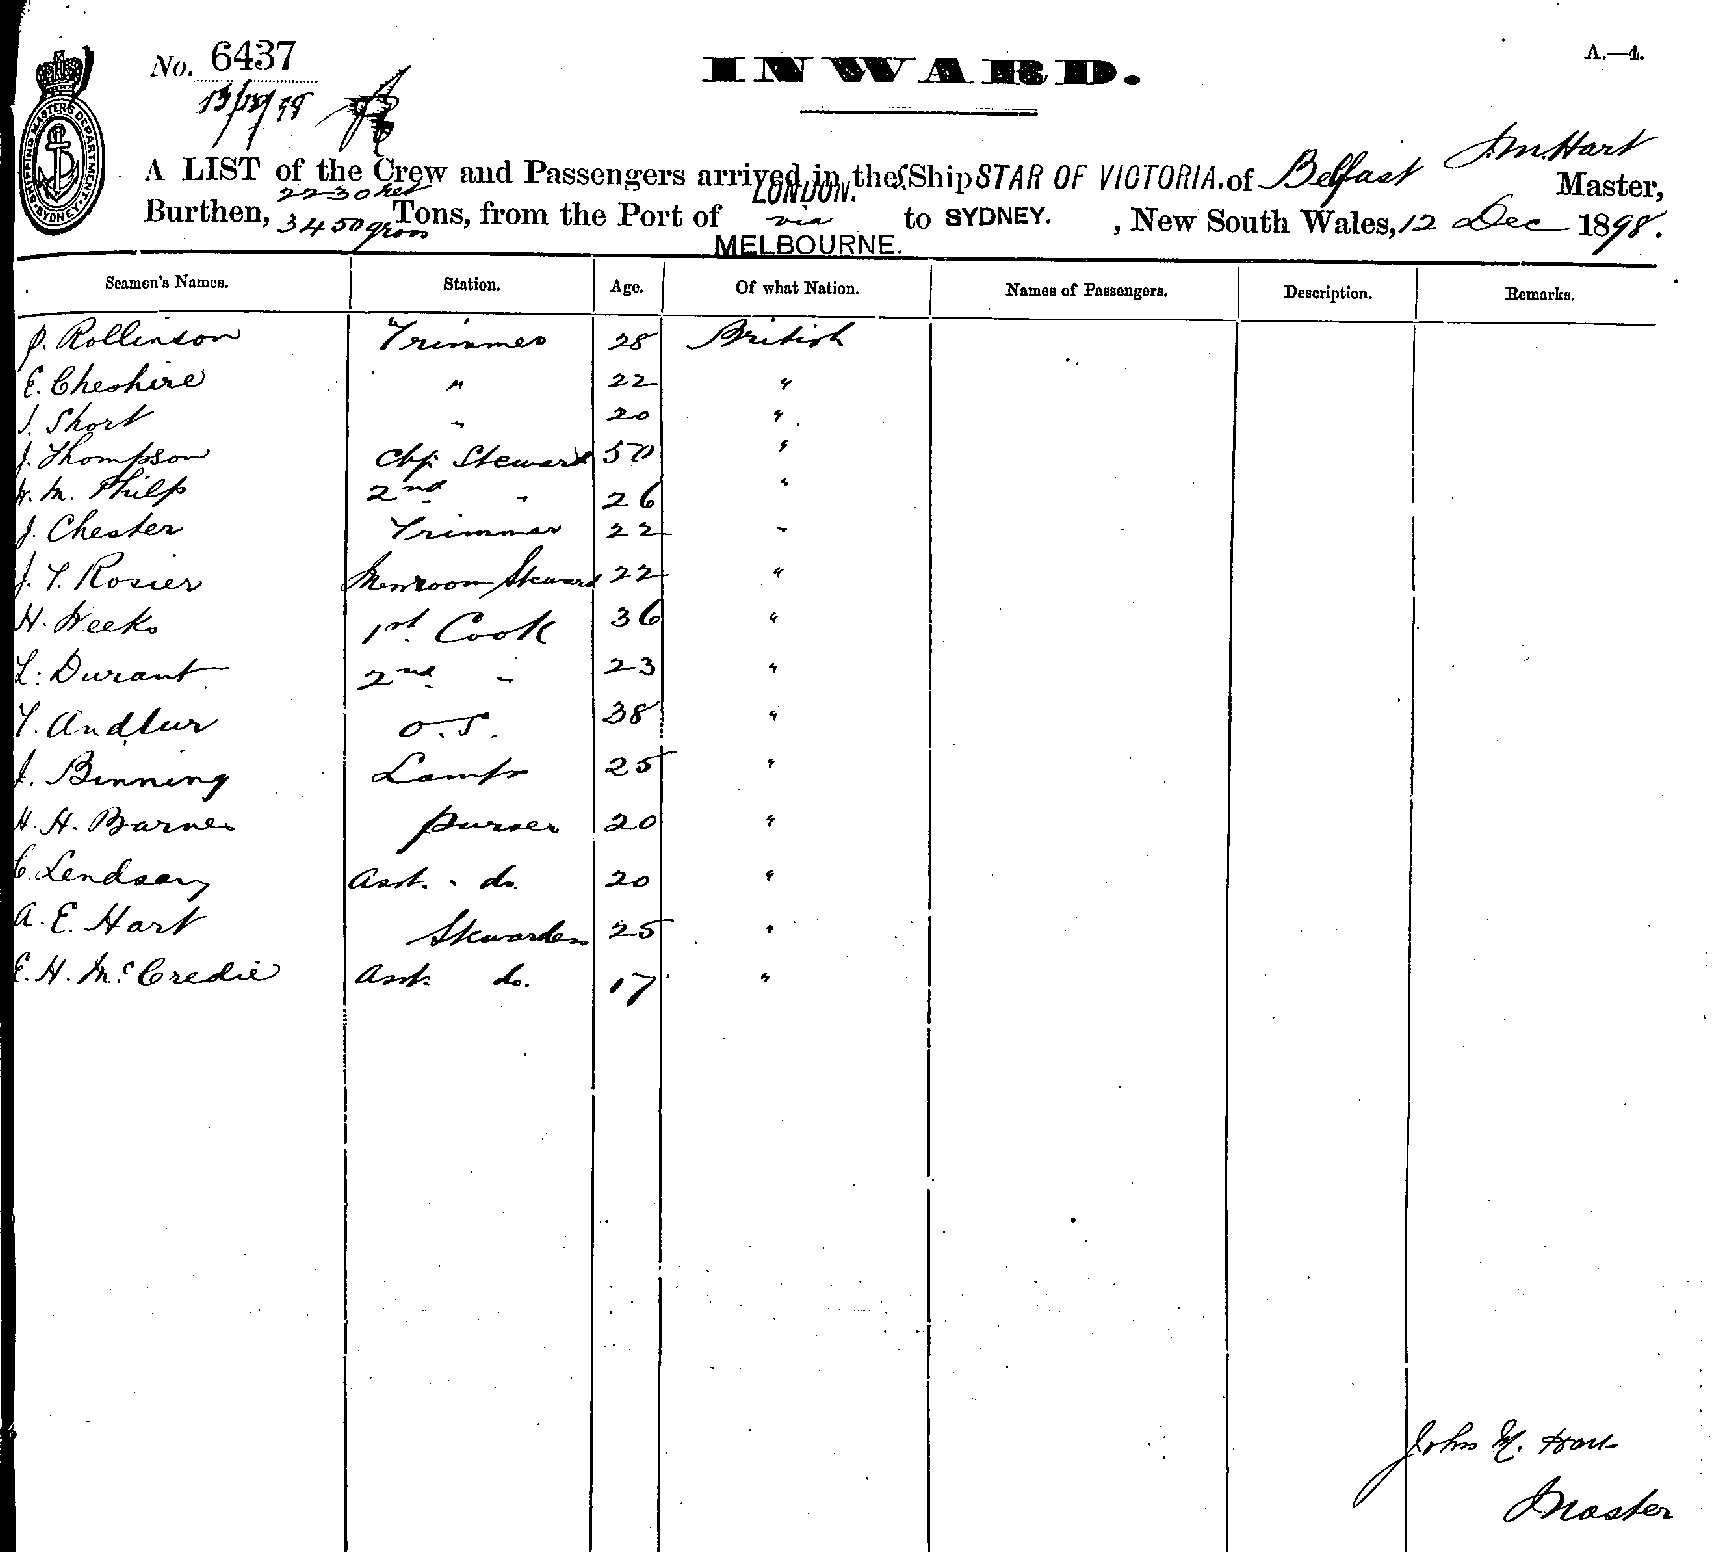 No. 6437
INWARD.
A.—4.
13/12/98
SHIPPING MASTERS DEPARTMENT SYDNEY
J. M. Hart
A LIST of the Crew and Passengers arrived in the S.Ship STAR OF VICTORIA. of Belfast Master,
2230 net
LONDON.
Burthen, 3450 gross Tons, from the Port of via to SYDNEY. , New South Wales, 12 Dec 1898.
MELBOURNE.
Seamen's Names. Station. Age. Of what Nation. Names of Passengers. Description. Remarks.
J. Rollinson Trimmer 28 British
E. Cheshire " 22 "
J. Short " 20 "
J. Thompson Chf. Steward 50 "
W. M. Philp 2nd " 26 "
J. Chester Trimmer 22 "
J. T. Rosier Messroom Steward 22 "
H. Weeks 1st Cook 36 "
L. Durant 2nd " 23 "
T. Andlur O.S. 38 "
J. Binning Lamps 25 "
H. H. Barnes Purser 20 "
C. Lendsay Asst. " do. 20 "
A. E. Hart Stewardess 25 "
E. H. McCredie Asst. do. 17 "
John M. Hart
Master